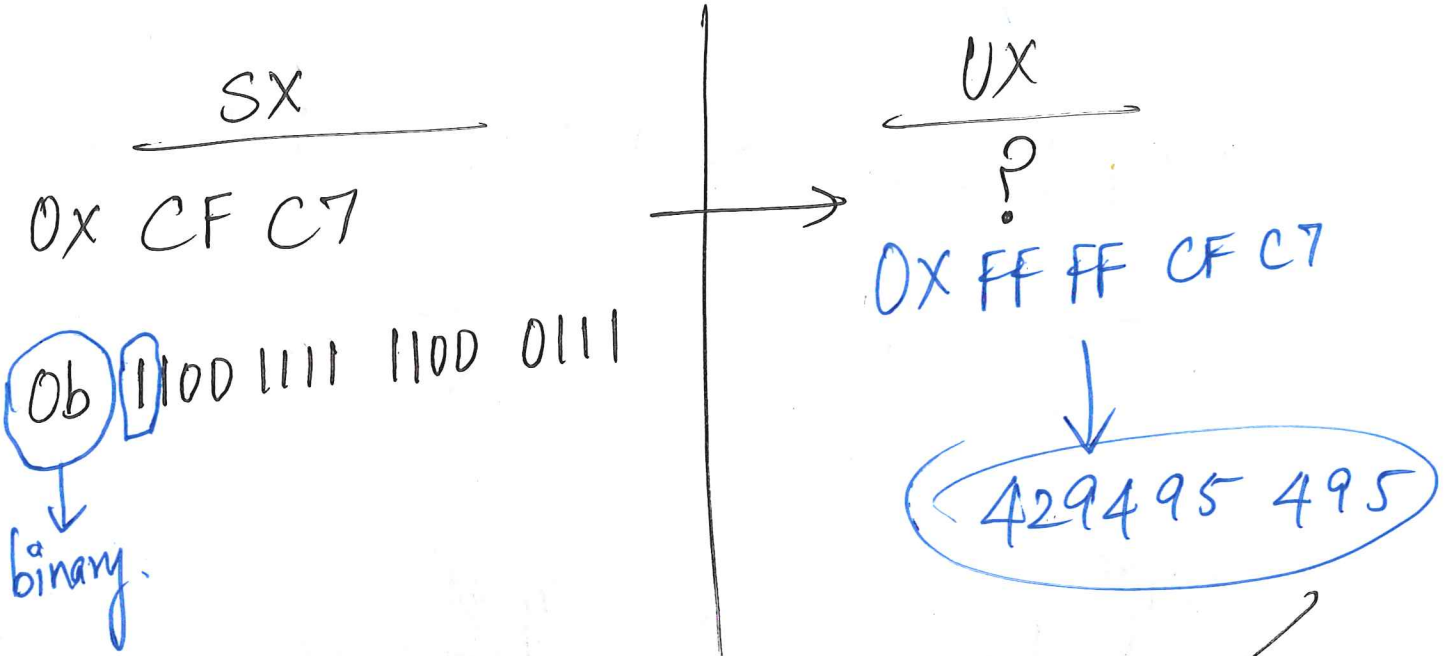 SX
0X CF C7
0b 1100 1111 1100 0111
binary.
UX
?
0X FF FF CF C7
429495 495